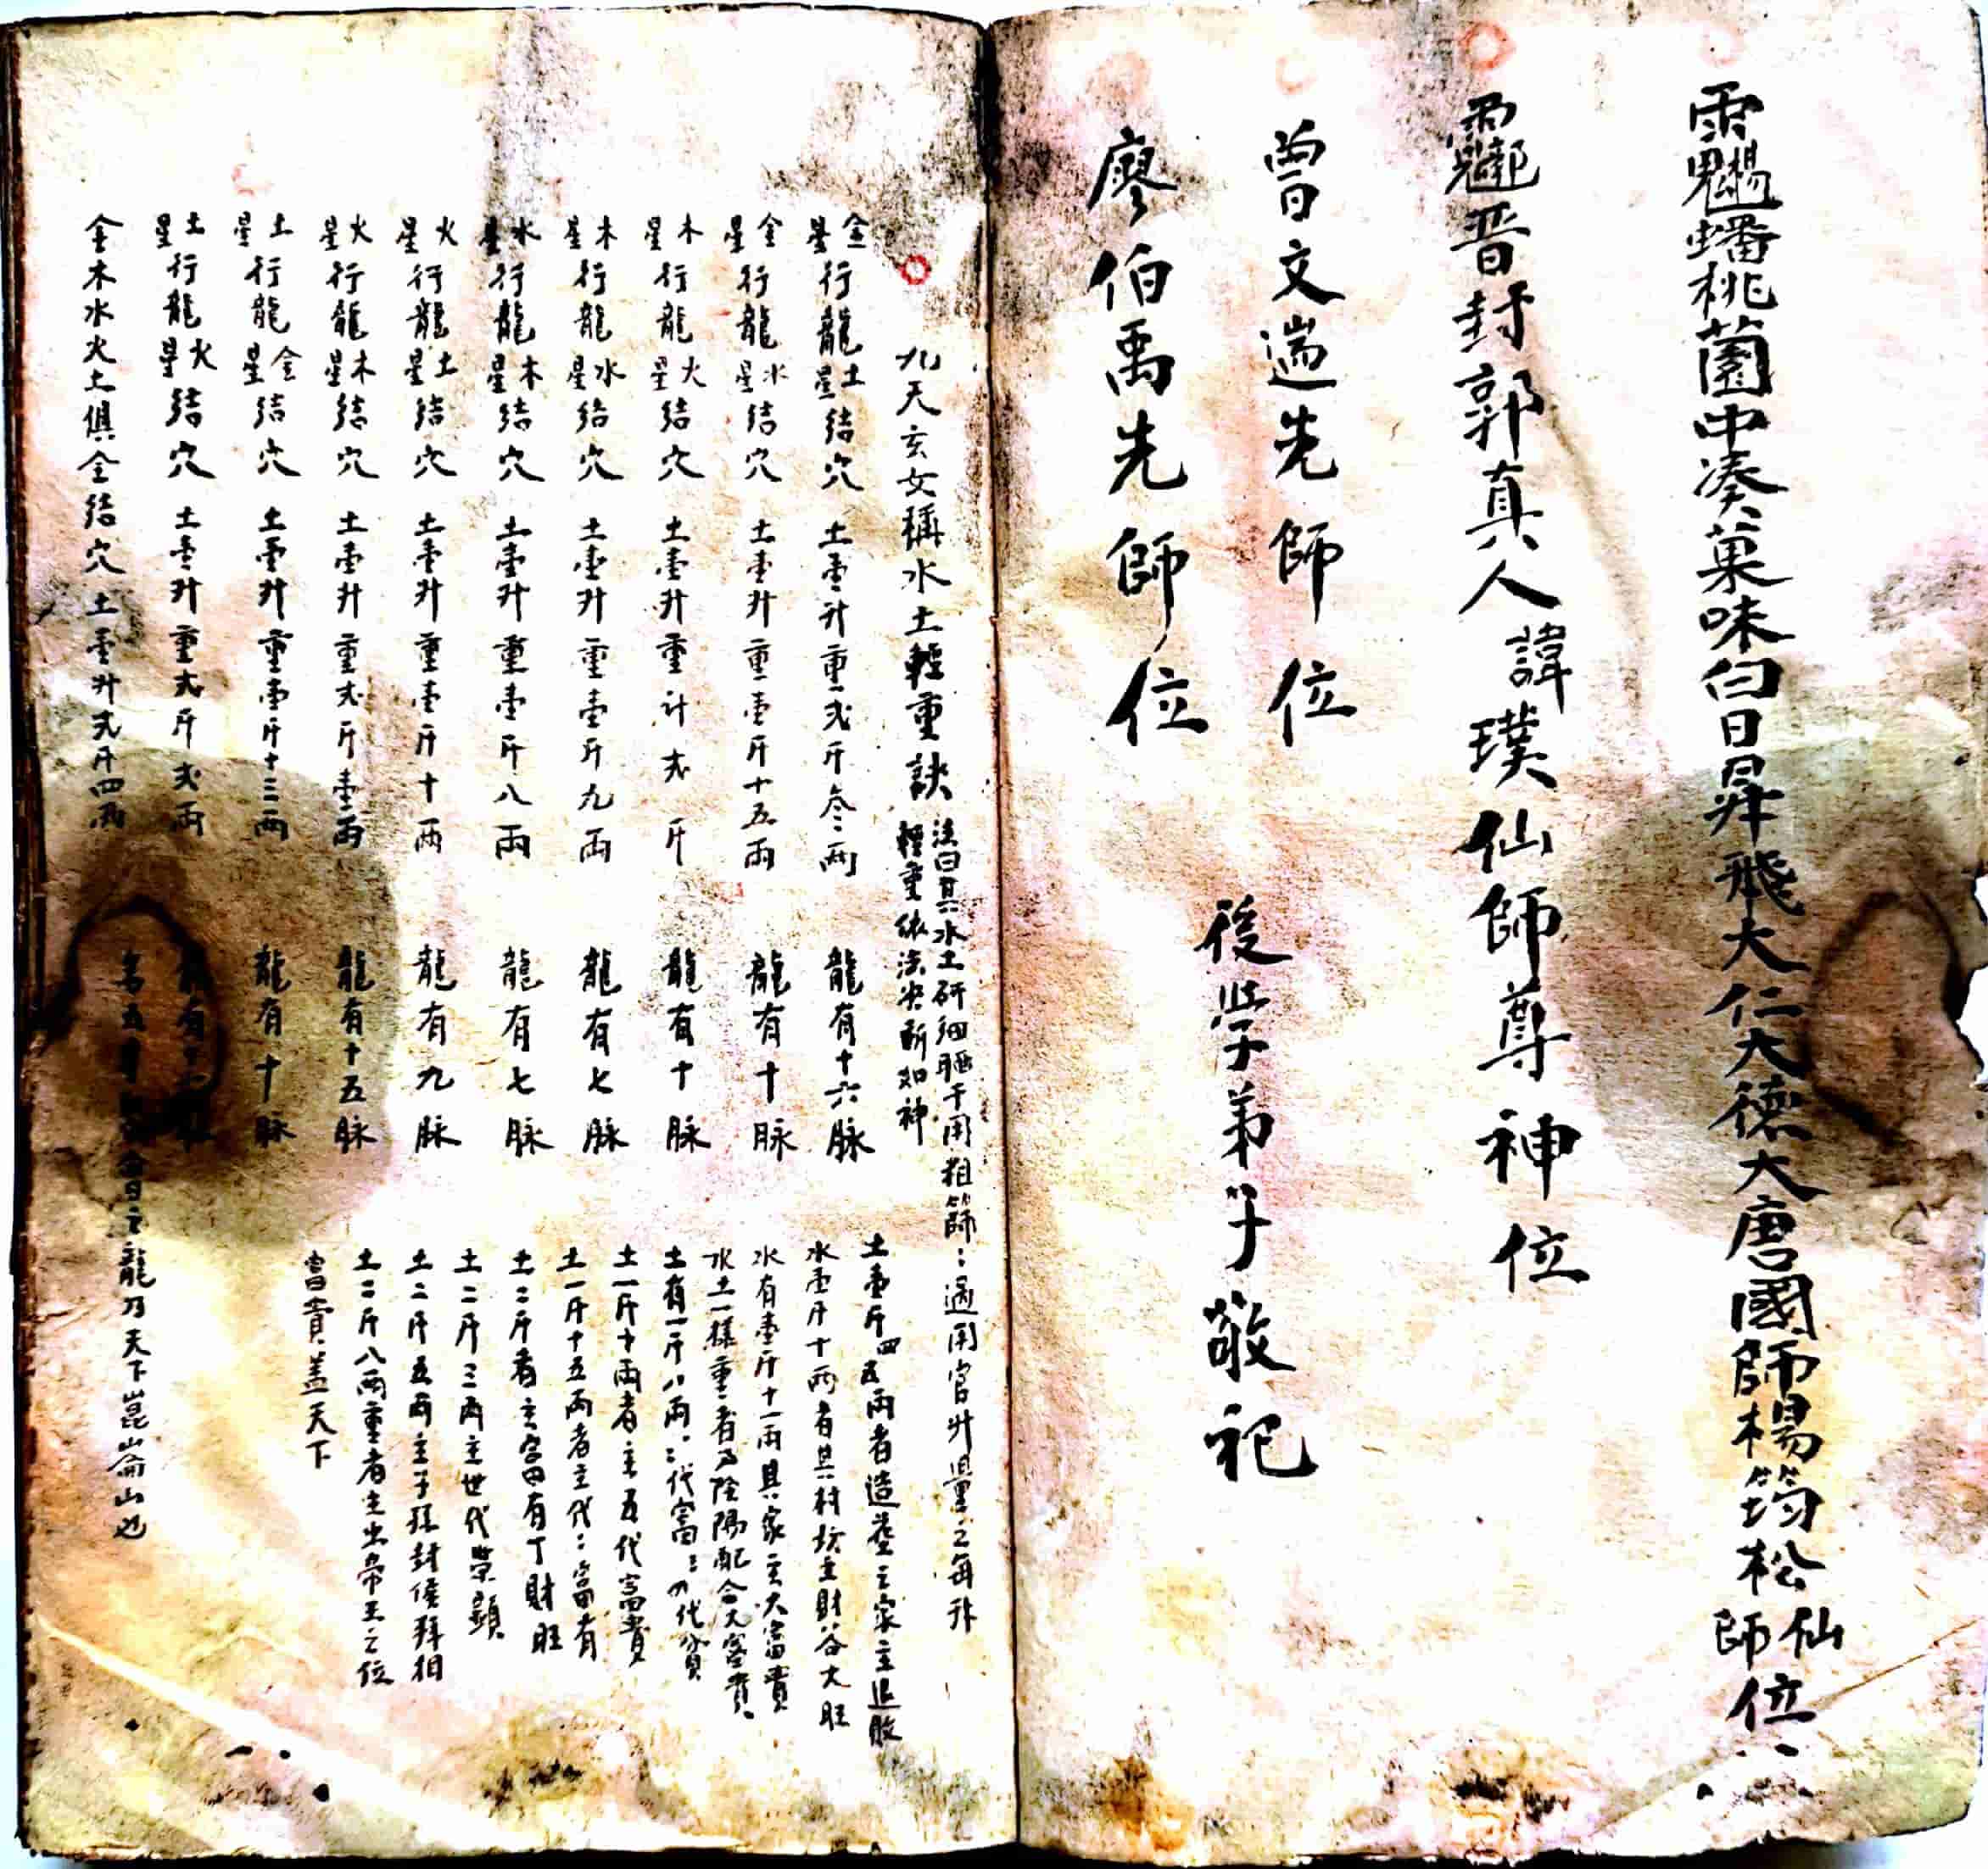 蟠桃園中凑菓味白日昇飛大仁大德大唐國師楊筠松仙師位
晋封郭真人諱璞仙師尊神位
曾文遄先師位
廖伯禹先師位
後学弟子敬祀
九天玄女稱水土輕重訣
法曰其水土研細晒干用粗篩〻過用官升量之每升
輕重依法决断如神
金星行龍土星結穴 土壹升重弍斤叁両 龍有十六脉
金星行龍水星結穴 土壹升重壹斤十五両 龍有十脉
木星行龍火星結穴 土壹升重計弍斤 龍有十脉
木星行龍水星結穴 土壹升重壹斤九両 龍有七脉
水星行龍木星結穴 土壹升重壹斤八両 龍有七脉
火星行龍土星結穴 土壹升重壹斤十両 龍有九脉
火星行龍木星結穴 土壹升重弍斤壹両 龍有十五脉
土星行龍金星結穴 土壹升重壹斤十三両 龍有十脉
土星行龍火星結穴 土壹升重弍斤弍両 龍有十脉
金木水火土俱全結穴 土壹升弍斤四両 龍乃天下崑崙山也
土壹斤四五両者造葬主家主退敗
水壹斤十両者其村坊主財谷大旺
水有壹斤十一両其家主大富貴
水土一樣重者乃陰陽配合大富貴
土有一斤八両三代富三代貧
土一斤十両者主五代富貴
土一斤十五両者主代〻富有
土二斤者主富由有丁財旺
土二斤三両主世代荣顕
土二斤五両主子孫封侯拜相
土二斤八両重者主出帝王之位
富貴盖天下